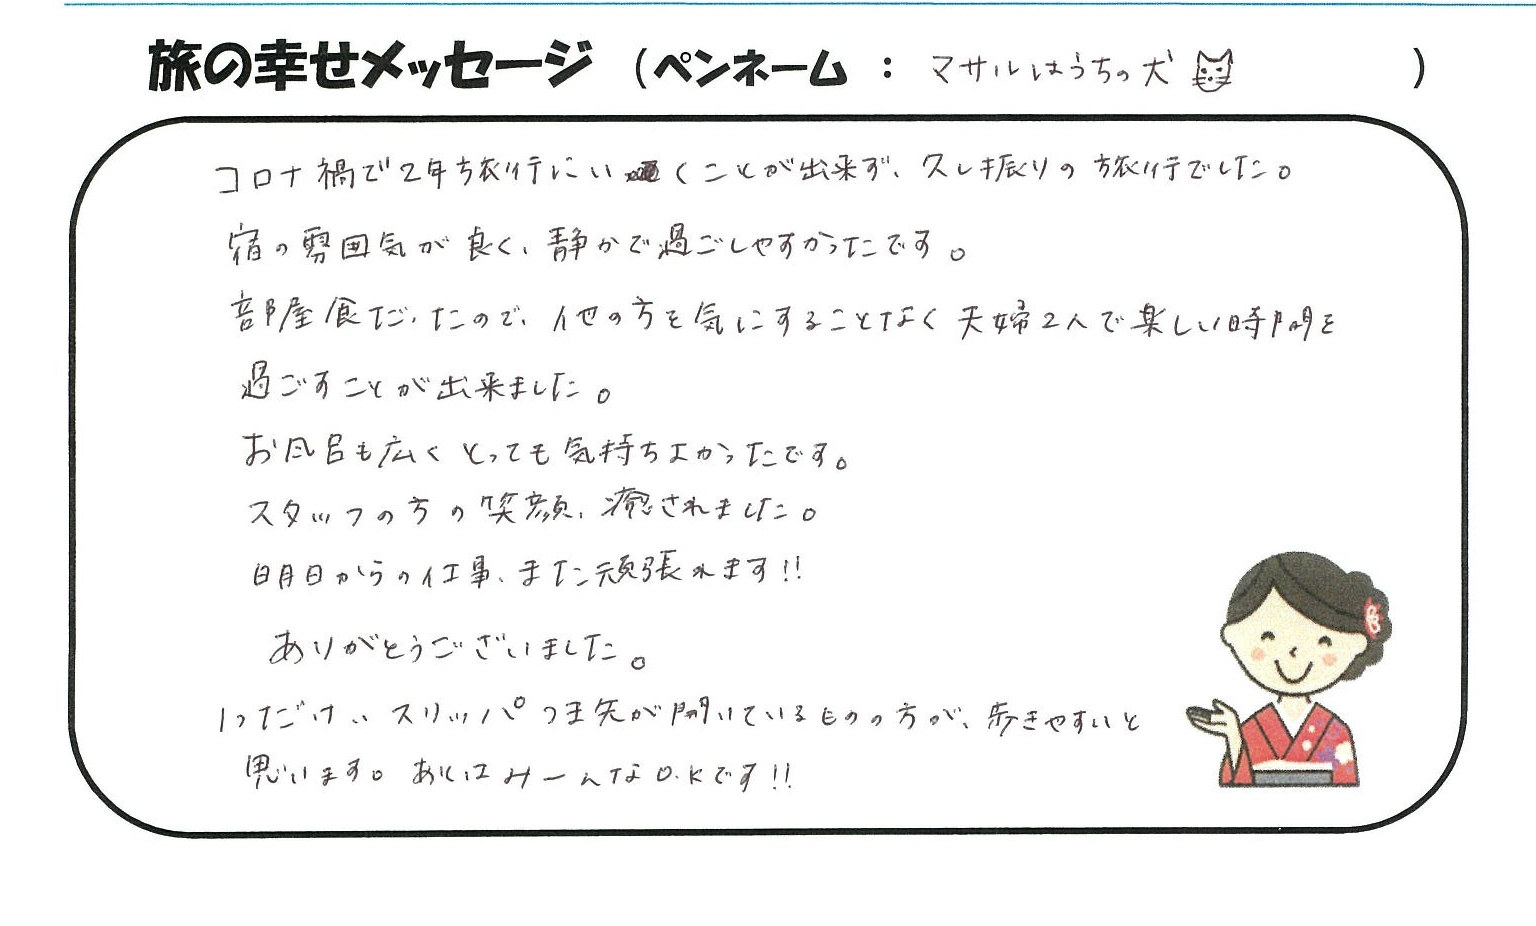 旅の幸せメッセージ（ペンネーム：マサルはうちの犬）
コロナ禍で2年も旅行にいくことが出来ず、久し振りの旅行でした。
宿の雰囲気が良く、静かで過ごしやすかったです。
部屋食だったので、他の方を気にすることなく夫婦2人で楽しい時間を
過ごすことが出来ました。
お風呂も広くとっても気持ちよかったです。
スタッフの方の笑顔、癒されました。
明日からの仕事、また頑張れます!!
ありがとうございました。
1つだけ…スリッパつま先が開いているものの方が、歩きやすいと
思います。あとはみーんなO.Kです!!